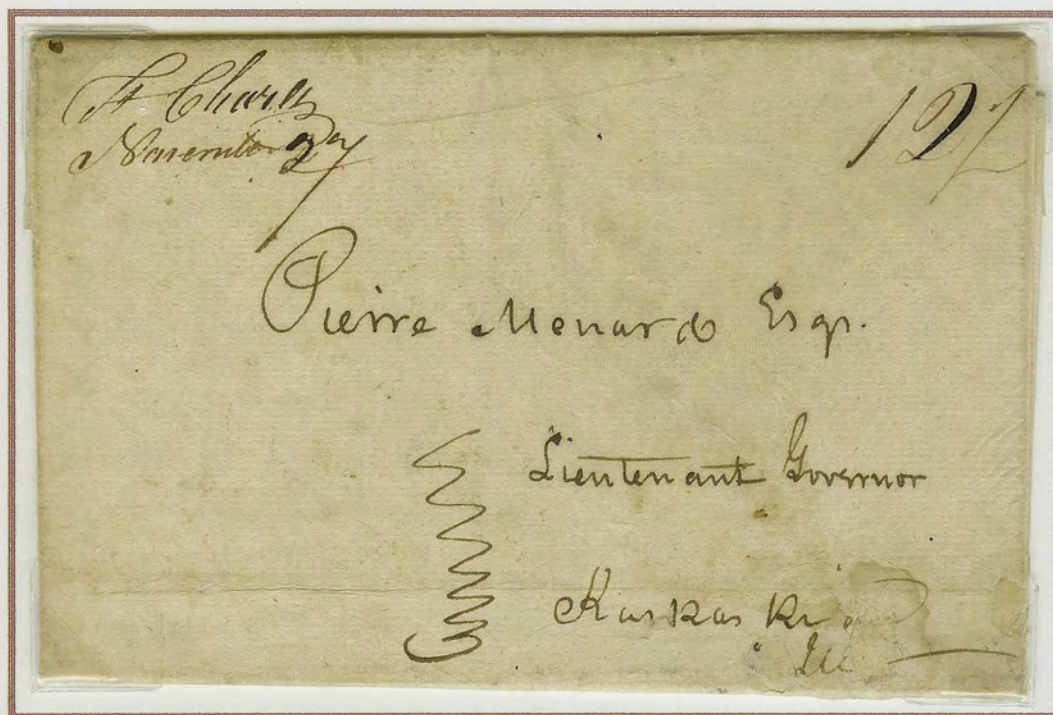 St Charles
November
12½
Pierre Menard Esqr.
Lieutenant Governor
Kaskaskia
Ill